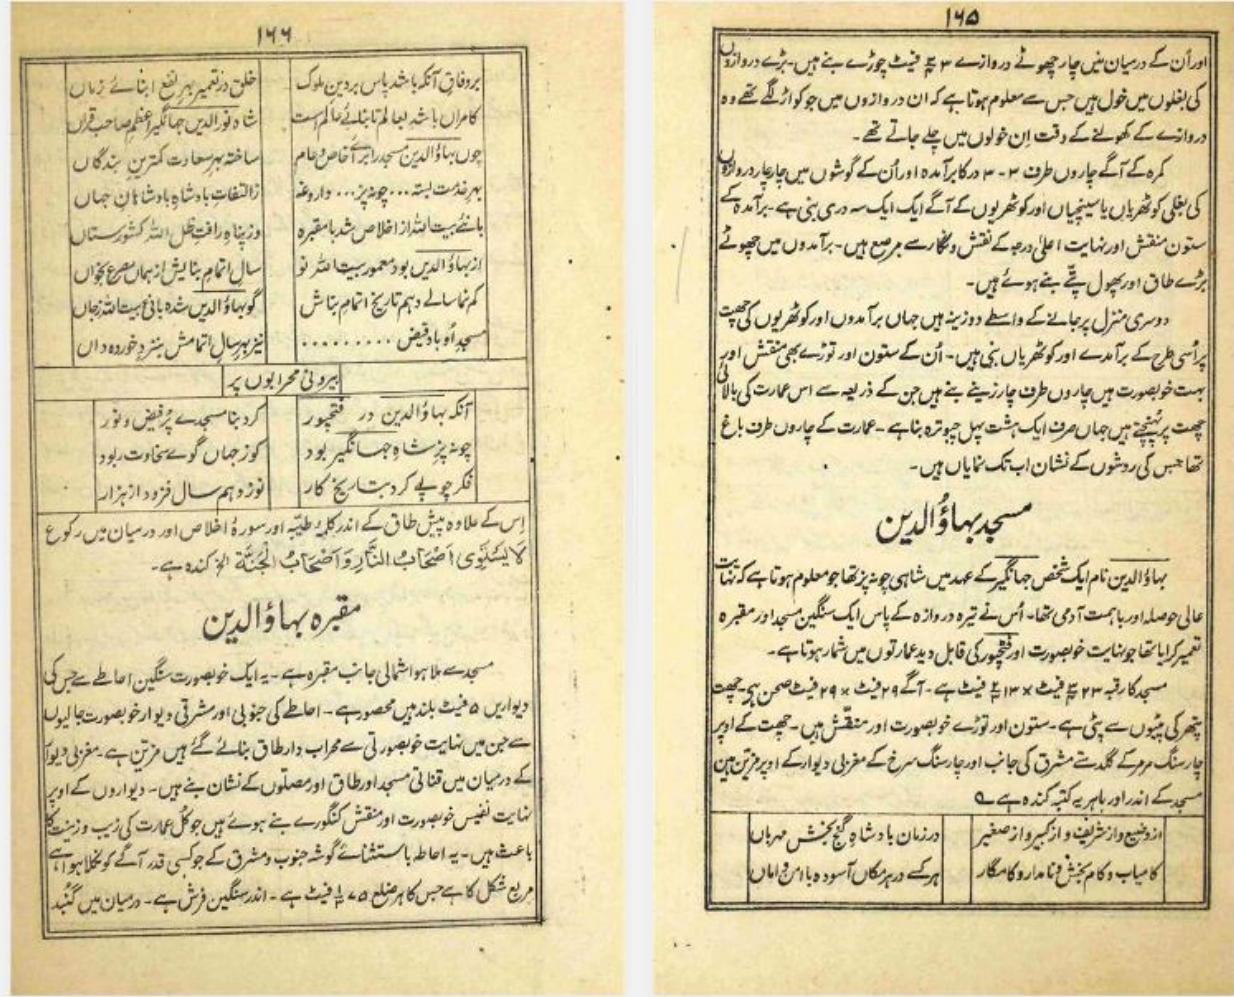 ۱۶۵
اور اُن کے درمیان میں چار چھوٹے دروازے ۳ فیٹ چوڑے بنے ہیں۔ بڑے دروازوں
کی بغلوں میں خول ہیں جس سے معلوم ہوتا ہے کہ ان دروازوں میں جو کواڑ لگے تھے وہ
دروازے کے کھولنے کے وقت اِن خولوں میں چلے جاتے تھے۔
کمرہ کے آگے چاروں طرف ۳-۳ در کا برآمدہ اور اُن کے گوشوں میں چار چار دروازہ
کی بغلی کوٹھریاں یا سینچیاں اور کوٹھریوں کے آگے ایک ایک سہ دری بنی ہے۔ برآمدہ کے
ستون منقش اور نہایت اعلیٰ درجہ کے نقش و نگار سے مرصع ہیں۔ برآمدوں میں چھوٹے
بڑے طاق اور پھول پتّے بنے ہوئے ہیں۔
دوسری منزل پر جانے کے واسطے دو زینہ ہیں جہاں برآمدوں اور کوٹھریوں کی چھت
پر اُسی طرح کے برآمدے اور کوٹھریاں بنی ہیں۔ اُن کے ستون اور توڑے بھی منقش اور
بہت خوبصورت ہیں چاروں طرف چار زینے بنے ہیں جن کے ذریعہ سے اس عمارت کی بالائی
چھت پر پہنچتے ہیں جہاں صرف ایک ہشت پہل چبوترہ بنا ہے۔ عمارت کے چاروں طرف باغ
تھا جس کی روشوں کے نشان اب تک نمایاں ہیں۔
مسجد بہاؤالدین
بہاؤالدین نام ایک شخص جہانگیر کے عہد میں شاہی چونہ پز تھا جو معلوم ہوتا ہے کہ نہایت
عالی حوصلہ اور باہمت آدمی تھا۔ اُس نے تیرہ دروازہ کے پاس ایک سنگین مسجد اور مقبرہ
تعمیر کرایا تھا جو نہایت خوبصورت اور فتحپور کی قابل دید عمارتوں میں شمار ہوتا ہے۔
مسجد کا رقبہ ۲۳ فیٹ × ۱۳ فیٹ ہے۔ آگے ۲۹ فیٹ × ۲۹ فیٹ صحن ہے۔ چھت
پتھر کی پٹیوں سے پٹی ہے۔ ستون اور توڑے خوبصورت اور منقّش ہیں۔ چھت کے اوپر
چار سنگ مرمر کے گلدستے مشرق کی جانب اور چار سنگ سرخ کے مغربی دیوار کے اوپر مزین ہیں
مسجد کے اندر اور باہر یہ کتبہ کندہ ہے
از وضیع و از شریف و از کبیر و از صغیر در زمان بادشاہ گنج بخش مہرباں
کامیاب و کام بخش و نامدار و کامگار ہر کسے در ہر مکاں آسودہ با امن و اماں
۱۶۶
بر وفاق آنکہ باشد پاس بر دین ملوک خلق در تعمیر بہر نفع ابنائے زماں
کامراں باشد بعالم تا بنائے عالم است شاہ نورالدین جہانگیر اعظم صاحب قراں
چوں بہاؤالدین مسجد را برائے خاص و عام ساختہ بہر سعادت کمترین بندگاں
بہر خدمت بستہ ... چونہ پز ... داروغہ ز التفات بادشاہ بادشاہان جہاں
بانئے بیت اللہ از اخلاص شد با مقبرہ وز پناہ رافت ظل اللہ کشورستاں
از بہاؤالدین بود معمور بیت اللہ نو سال اتمام بنایش از ہماں مصرع بخواں
کم نما سالے دہم تاریخ اتمام بناش گو بہاؤالدین شدہ بانی بیت اللہ ز جاں
مسجد او باد فیض .......... نیز بہر سال اتمامش بنزد خوردہ داں
بیرونی محرابوں پر
آنکہ بہاؤالدین در فتحپور کرد بنا مسجدے پُر فیض و نور
چونہ پز شاہ جہانگیر بود کوز جہاں گوے سخاوت ربود
فکر چو پے کرد بتاریخ کار نوزدہم سال فزود از ہزار
اِس کے علاوہ پیش طاق کے اندر کلمہ طیبہ اور سورۂ اخلاص اور درمیان میں رکوع
لَا یَسْتَوِی اَصْحَابُ النَّارِ وَ اَصْحَابُ الْجَنَّة الخ کندہ ہے۔
مقبرہ بہاؤالدین
مسجد سے ملا ہوا شمالی جانب مقبرہ ہے۔ یہ ایک خوبصورت سنگین احاطے ہے جس کی
دیواریں ۵ فیٹ بلند ہیں محصور ہے۔ احاطے کی جنوبی اور مشرقی دیوار خوبصورت جالیوں
سے جن میں نہایت خوبصورتی سے محراب دار طاق بنائے گئے ہیں مزین ہے۔ مغربی دیوار
کے درمیان میں قناتی مسجد اور طاق اور مصلّوں کے نشان بنے ہیں۔ دیواروں کے اوپر
نہایت نفیس خوبصورت اور منقش کنگورے بنے ہوئے ہیں جو کُل عمارت کی زیب و زینت کا
باعث ہیں۔ یہ احاطہ باستثنائے گوشہ جنوب و مشرق کے جو کسی قدر آگے کو نکلا ہوا ہے
مربع شکل کا ہے جس کا ہر ضلع ۷۵ فیٹ ہے۔ اندر سنگین فرش ہے۔ درمیان میں گنبد